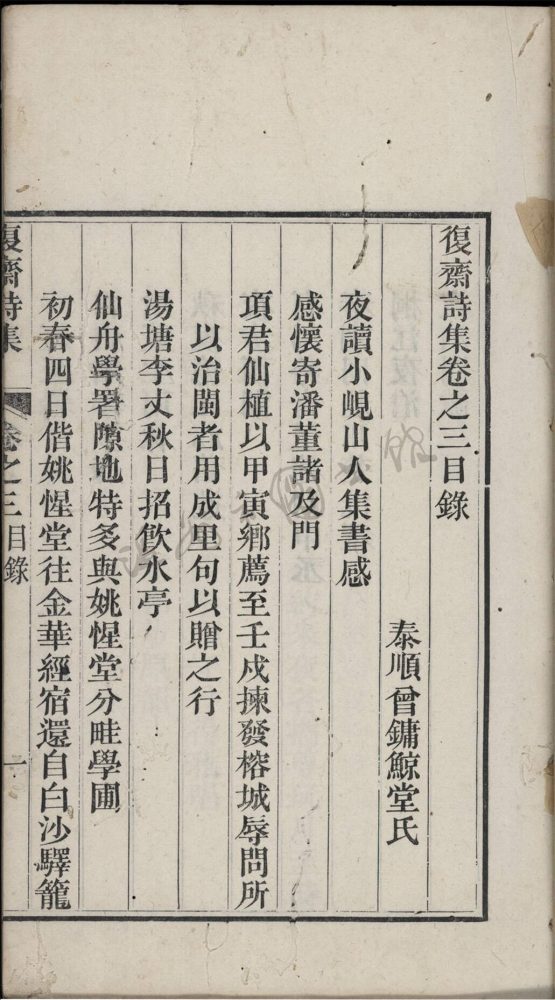 復齋詩集卷之三目錄
泰順曾鏞鯨堂氏
夜讀小峴山人集書感
感懷寄潘董諸及門
項君仙植以甲寅鄉薦至壬戌揀發榕城辱問所
以治閩者用成里句以贈之行
湯塘李丈秋日招飲水亭
仙舟學署隙地特多與姚惺堂分畦學圃
初春四日偕姚惺堂往金華經宿還自白沙驛籠
復齋詩集
卷之三目錄
一